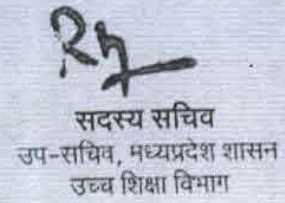 सदस्य सचिव
उप-सचिव, मध्यप्रदेश शासन
उच्च शिक्षा विभाग